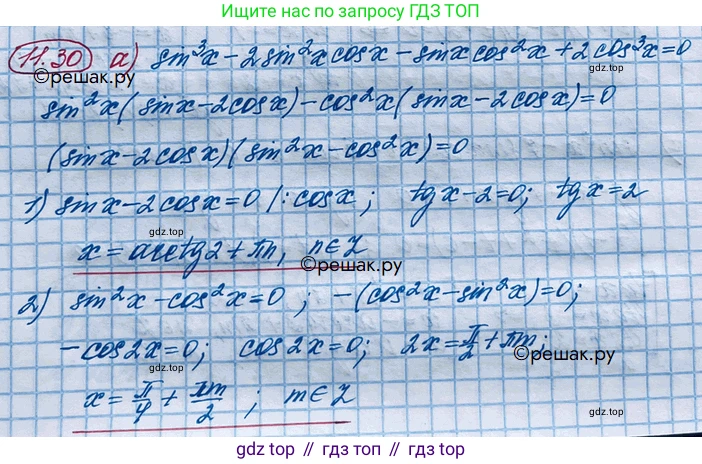 Ищите нас по запросу ГДЗ ТОП
11.30 а) sin³x - 2sin²x cosx - sinx cos²x + 2cos³x = 0
©решак.ру
gdz.top
sin²x(sinx - 2cosx) - cos²x(sinx - 2cosx) = 0
(sinx - 2cosx)(sin²x - cos²x) = 0
1) sinx - 2cosx = 0 /: cosx ; tgx - 2 = 0; tgx = 2
gdz.top
gdz.top
x = arctg2 + πn, n∈Z
©решак.ру
2) sin²x - cos²x = 0 ; -(cos²x - sin²x) = 0;
-cos2x = 0; cos2x = 0; 2x = π/2 + πm;
©решак.ру
x = π/4 + πm/2 ; m∈Z
gdz.top
gdz.top
gdz.top // гдз.топ // gdz.top